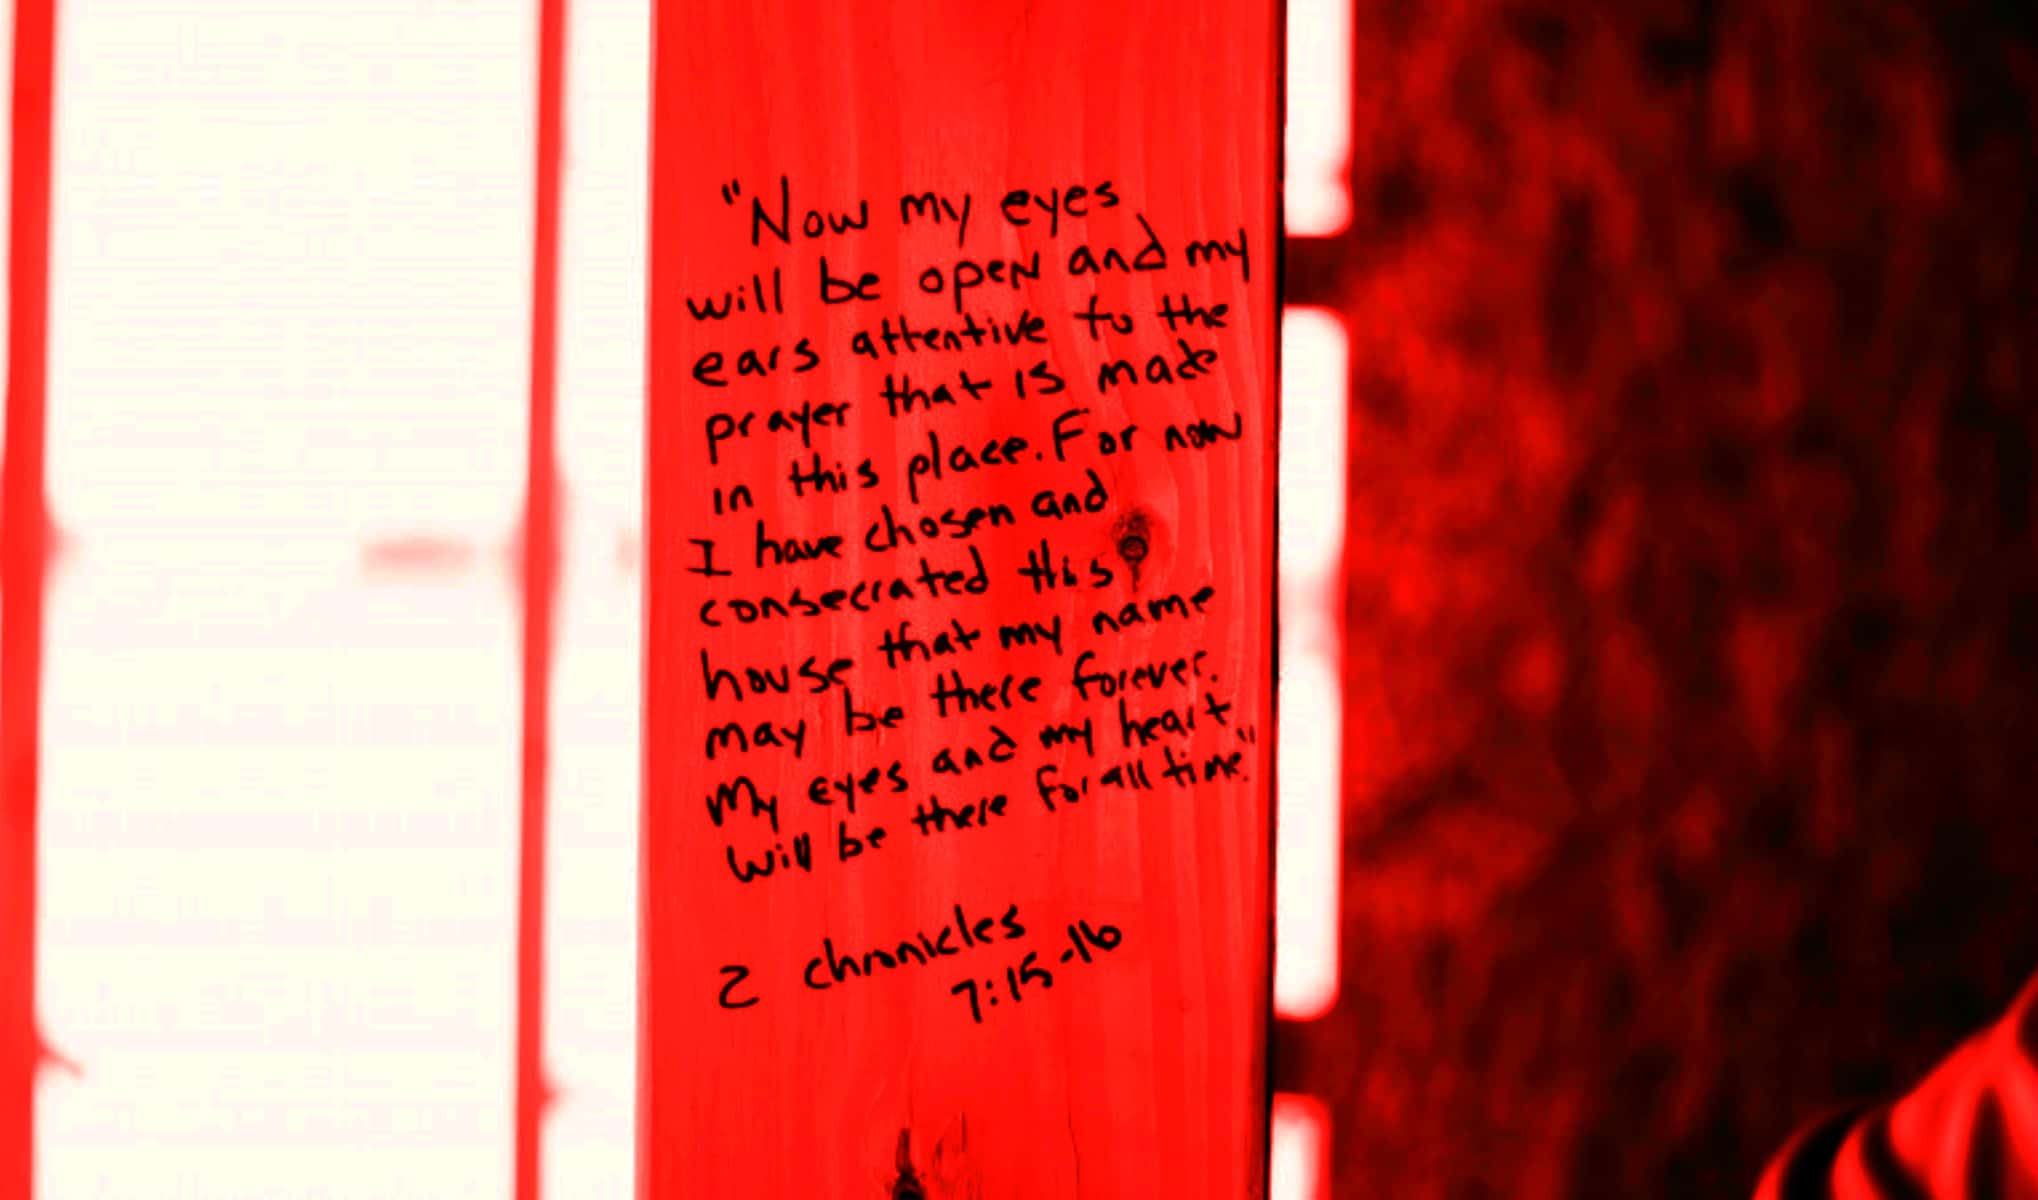 "Now my eyes
will be open and my
ears attentive to the
prayer that is made
in this place. For now
I have chosen and
consecrated this
house that my name
may be there forever.
My eyes and my heart
will be there for all time."
2 chronicles
7:15-16